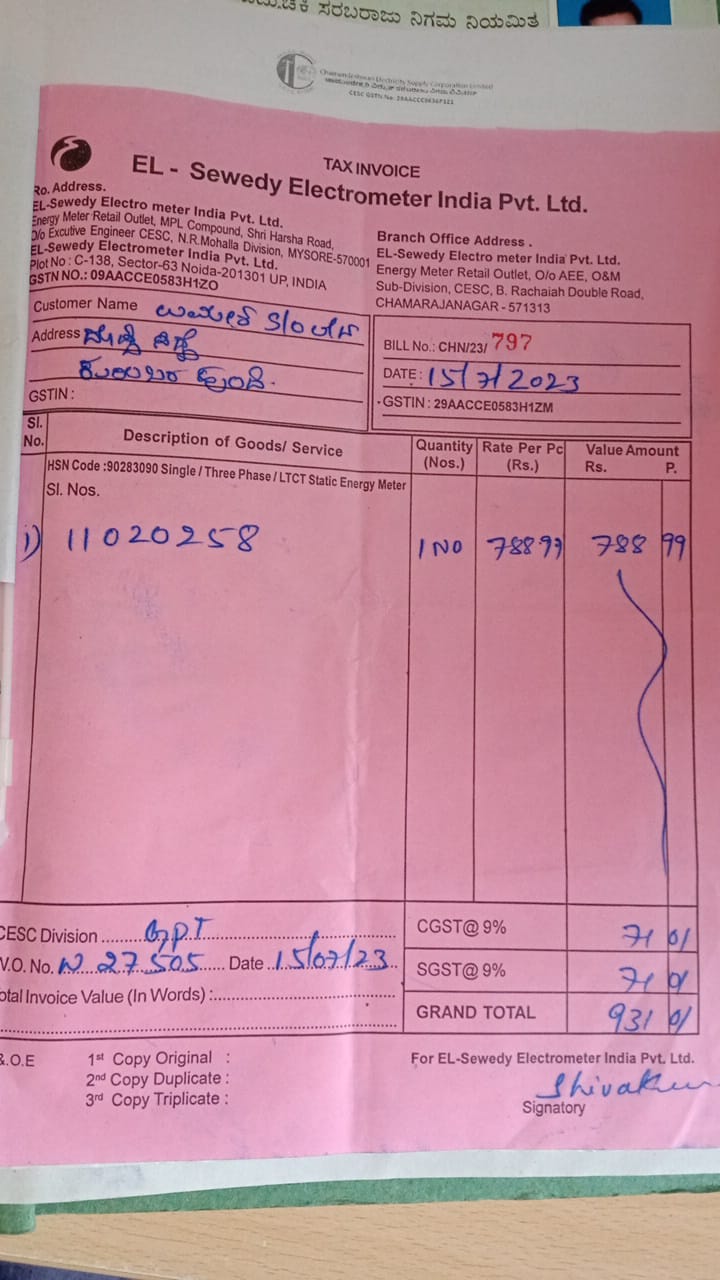 ಸರಬರಾಜು ನಿಗಮ ನಿಯಮಿತ
Chamundeshwari Electricity Supply Corporation Limited
TAX INVOICE
EL - Sewedy Electrometer India Pvt. Ltd.
Ro. Address.
EL-Sewedy Electro meter India Pvt. Ltd.
Energy Meter Retail Outlet, MPL Compound, Shri Harsha Road,
O/o Excutive Engineer CESC, N.R.Mohalla Division, MYSORE-570001
EL-Sewedy Electrometer India Pvt. Ltd.
Plot No : C-138, Sector-63 Noida-201301 UP, INDIA
GSTN NO.: 09AACCE0583H1ZO
Branch Office Address .
EL-Sewedy Electro meter India Pvt. Ltd.
Energy Meter Retail Outlet, O/o AEE, O&M
Sub-Division, CESC, B. Rachaiah Double Road,
CHAMARAJANAGAR - 571313
Customer Name S/O
Address
GSTIN :
BILL No.: CHN/23/ 797
DATE : 15/7/2023
GSTIN : 29AACCE0583H1ZM
Sl. No. Description of Goods/ Service Quantity (Nos.) Rate Per Pc (Rs.) Value Amount Rs. P.
HSN Code :90283090 Single / Three Phase / LTCT Static Energy Meter
Sl. Nos.
1) 11020258 1 NO 788 99 788 99
CESC Division CGST@ 9% 71 01
V.O. No. N 27505 Date 15/07/23 SGST@ 9% 71 01
Total Invoice Value (In Words) : GRAND TOTAL 931 01
&.O.E
1st Copy Original :
2nd Copy Duplicate :
3rd Copy Triplicate :
For EL-Sewedy Electrometer India Pvt. Ltd.
Signatory